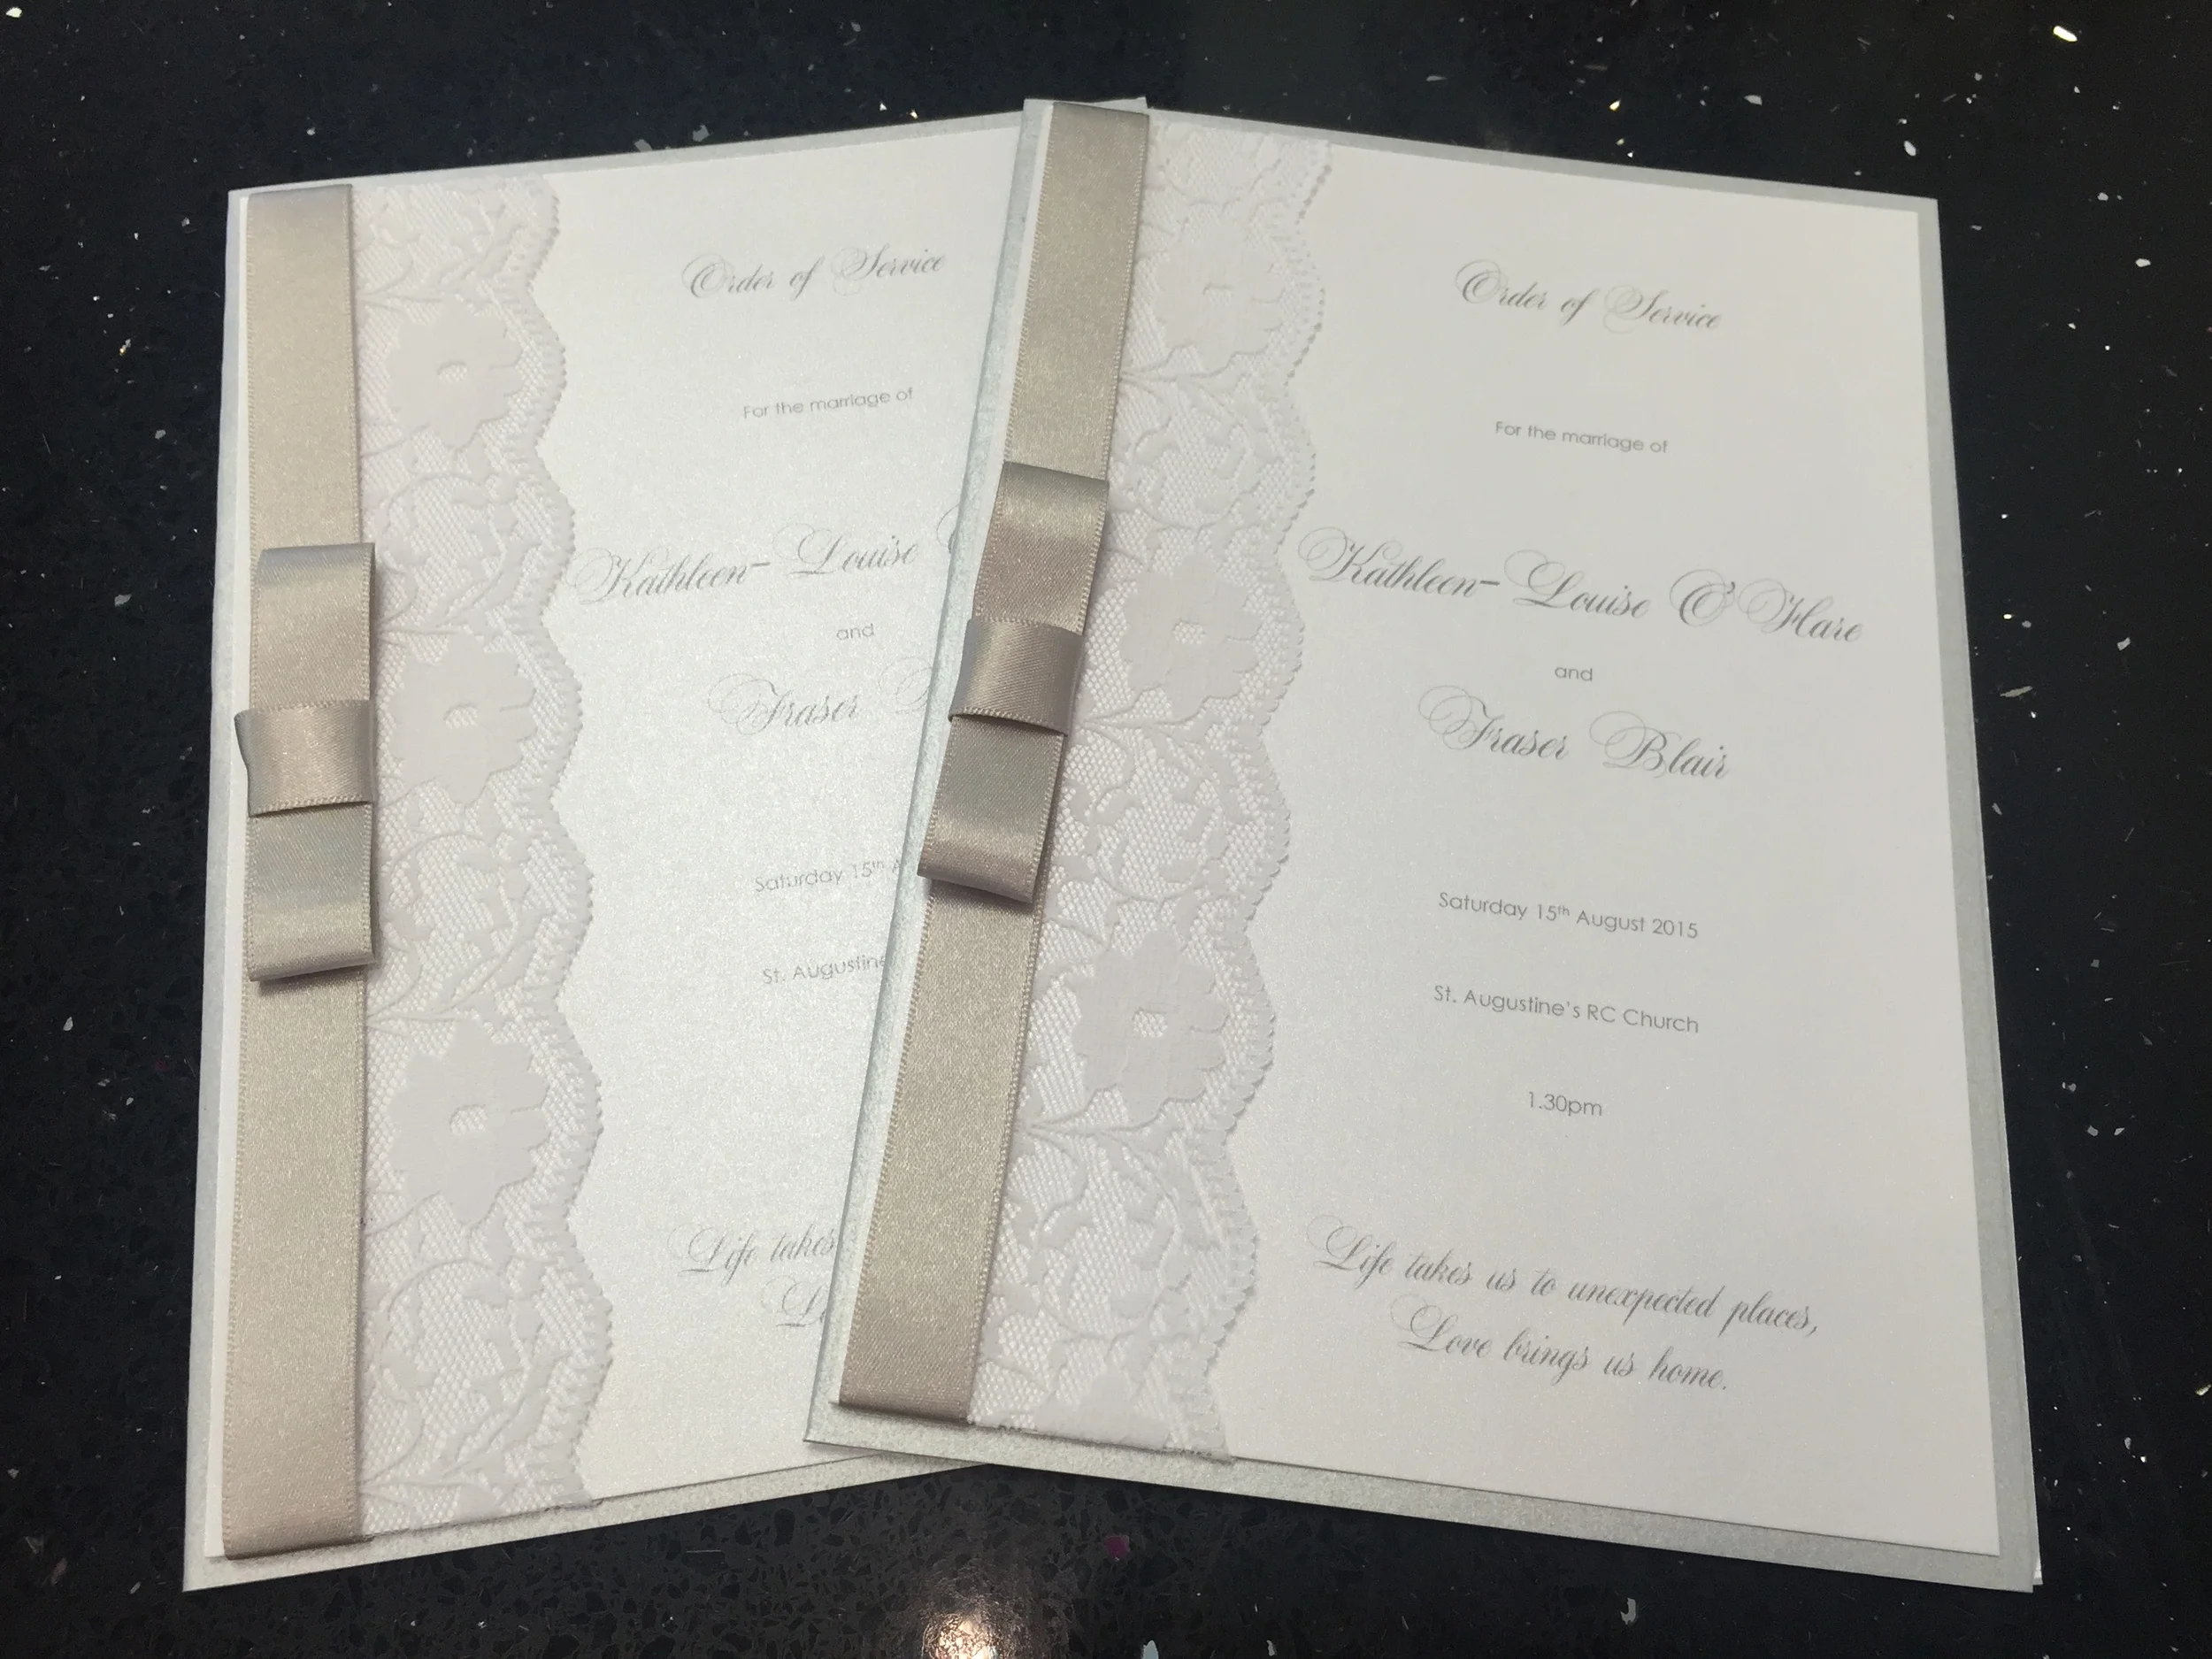 Order of Service
For the marriage of
Kathleen- Louise
and
Fraser
Saturday 15th
St. Augustine
Life takes
Order of Service
For the marriage of
Kathleen- Louise O'Hare
and
Fraser Blair
Saturday 15th August 2015
St. Augustine's RC Church
1.30pm
Life takes us to unexpected places,
Love brings us home.